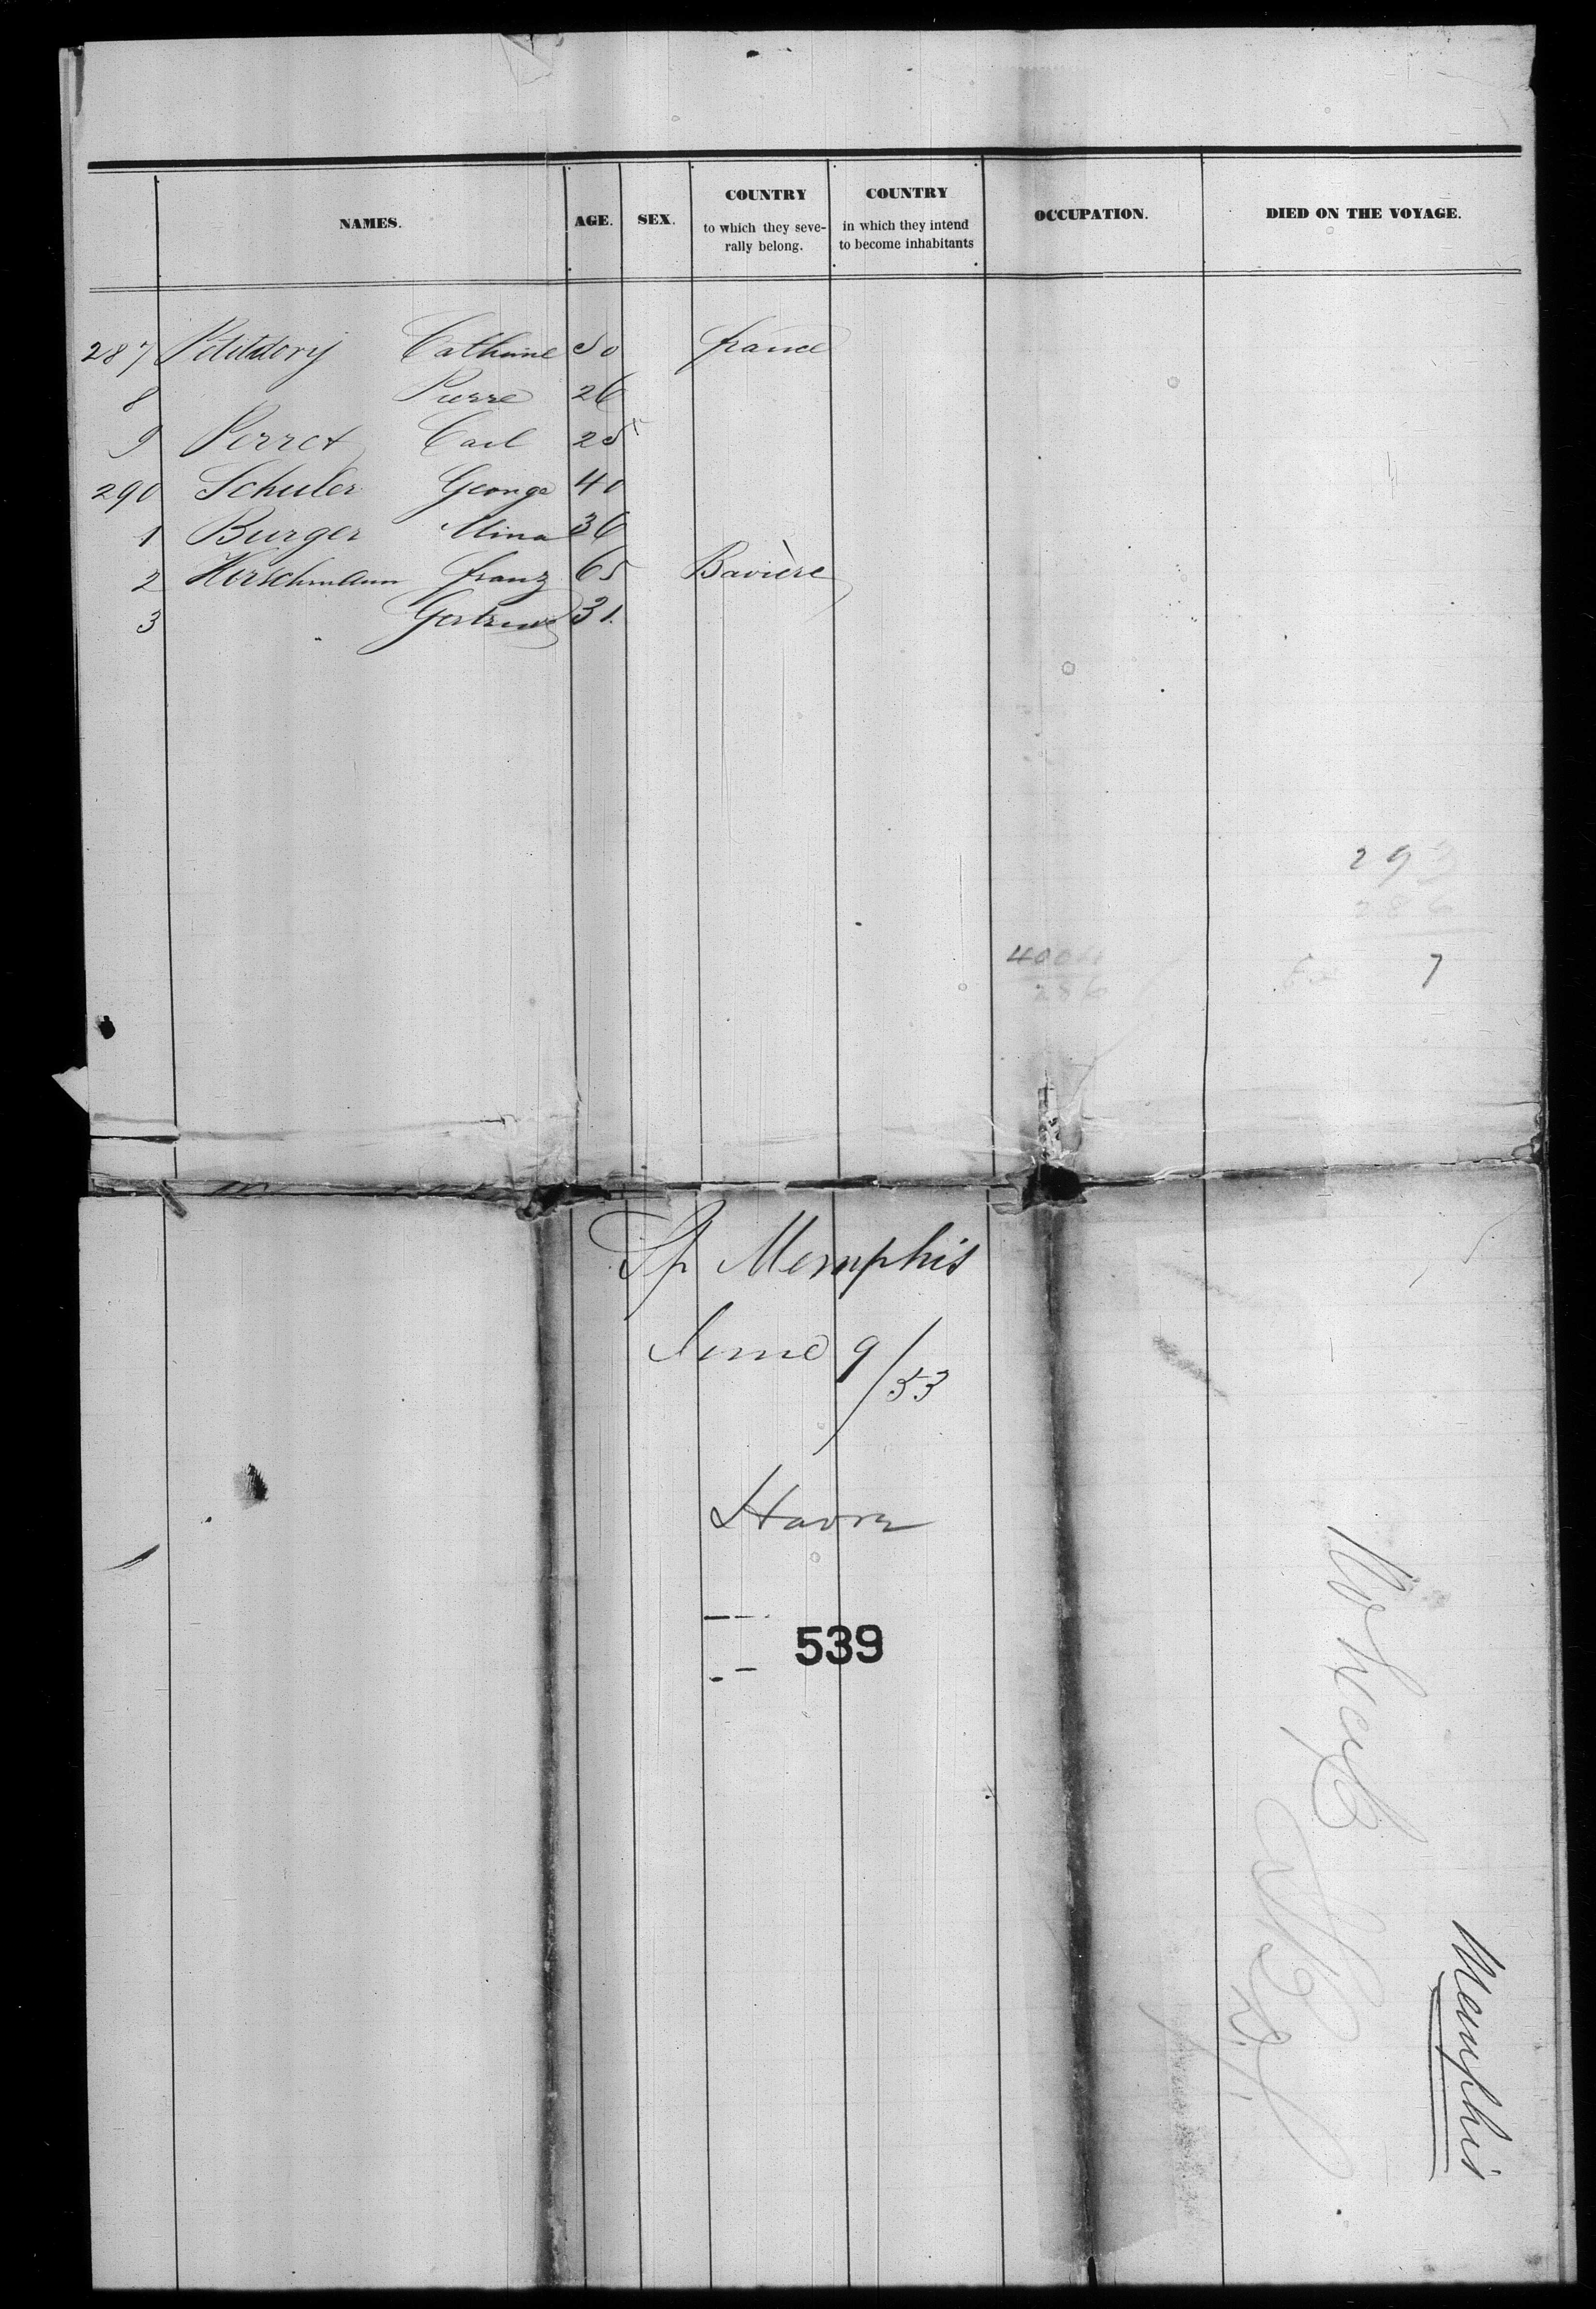 NAMES. AGE. SEX. COUNTRY to which they seve- rally belong. COUNTRY in which they intend to become inhabitants OCCUPATION. DIED ON THE VOYAGE.
287 Cathrine 50 france
8 Pierre 26
9 Perret Carl 25
290 Schuler George 40
1 Burger Mina 36
2 Hirschmann franz 65 Bavière
3 Gertrude 31.
293
286
400
286
7
Sp Memphis
June 9/53
Havre
539
Memphis